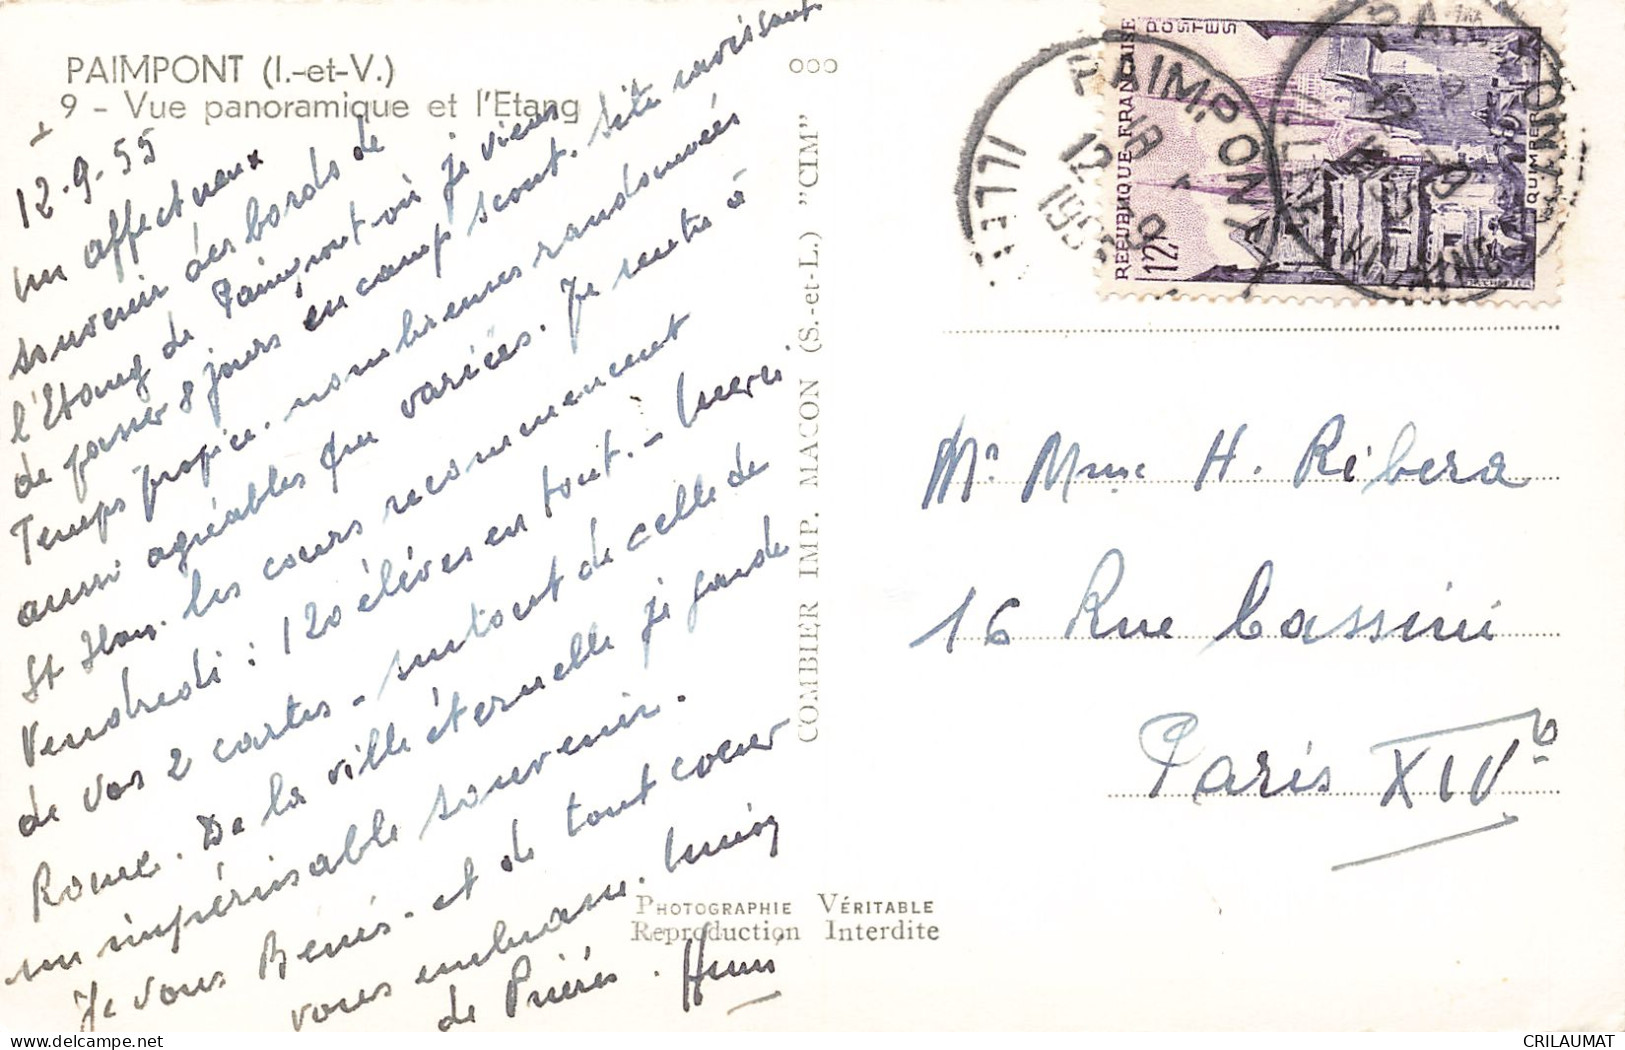 PAIMPONT (I.-et-V.)
9 - Vue panoramique et l'Etang
+
12.9.55
Un affectueux
souvenir des bords de
l'Etang de Paimpont où je viens
de passer 8 jours en camp scout. Site ravissant
Temps propice. nombreuses randonnées
aussi agréables que variées. Je rentre à
St
les cours recommencent
Vendredi : 120 élèves en tout. - Merci
de vos 2 cartes - surtout de celle de
Rome. De la ville éternelle je garde
un impérissable souvenir.
Je vous Bénis - et de tout coeur
vous embrasse.
de Prières.
COMBIER IMP. MACON (S.-et-L.) "CIM"
PHOTOGRAPHIE VÉRITABLE
Reproduction Interdite
PAIMPONT
ILLE
12
18
9
REPUBLIQUE FRANÇAISE
POSTES
12F
QUIMPER
Mr Mme H. Ribera
16 Rue Cassini
Paris XIVe
CRILAUMAT